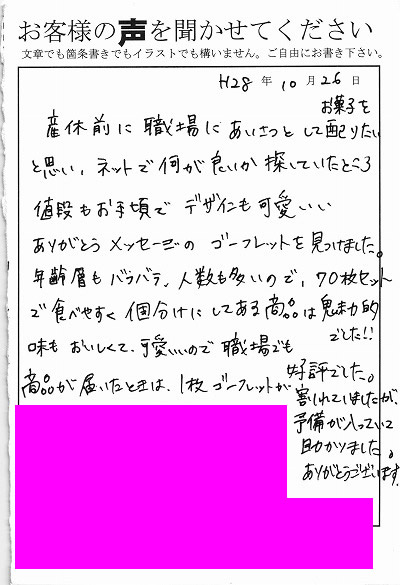 お客様の声を聞かせてください
文章でも箇条書きでもイラストでも構いません。ご自由にお書き下さい。
H28年10月26日
お菓子を
産休前に職場にあいさつとして配りたい
と思い、ネットで何が良いか探していたところ
値段もお手頃でデザインも可愛いい
ありがとうメッセージのゴーフレットを見つけました。
年齢層もバラバラ、人数も多いので、70枚セット
で食べやすく個分けにしてある商品は魅力的
でした!!
味もおいしくて、可愛いいので職場でも
好評でした。
商品が届いたときは、1枚ゴーフレットが
割れていましたが、
予備が入っていて
助かりました。
ありがとうございます。